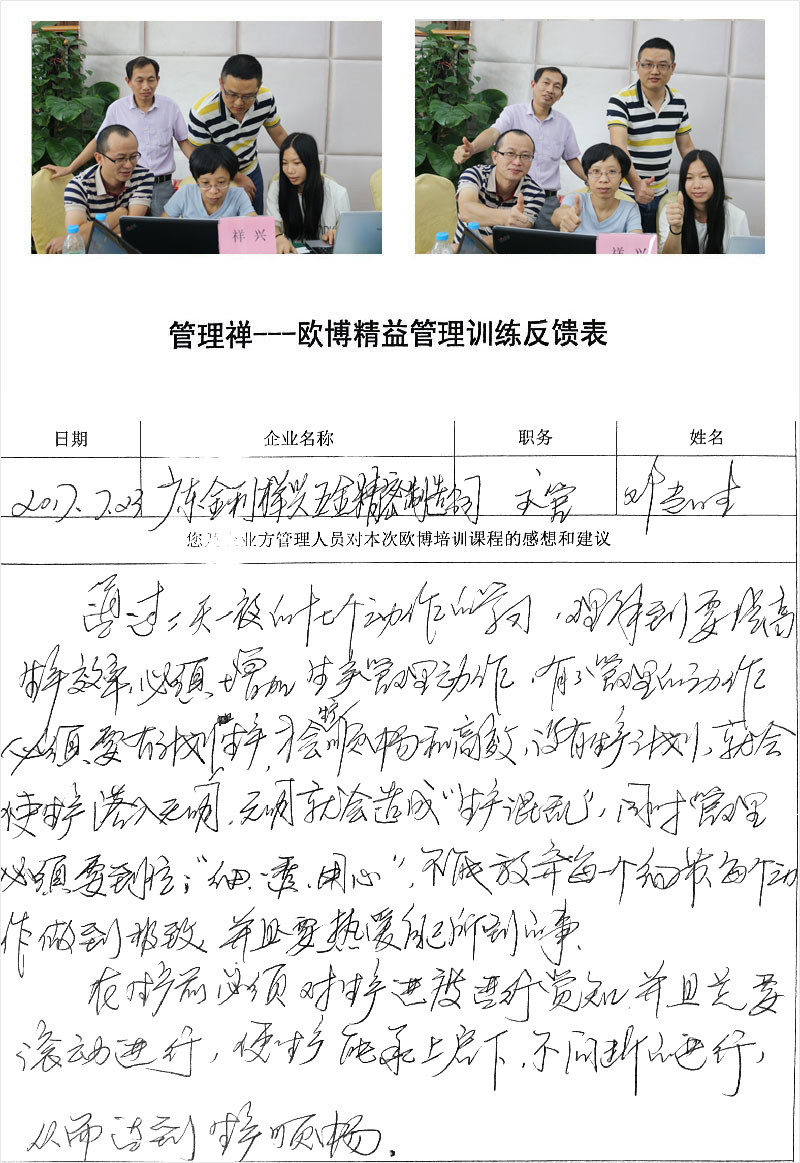 祥兴
祥兴
管理禅---欧博精益管理训练反馈表
日期 企业名称 职务 姓名
2017.7.23 广东金利祥兴五金精密制造公司 主管 邓
您及企业方管理人员对本次欧博培训课程的感想和建议
通过二天一夜的十七个动作的学习，理解到要提高
生产效率，必须增加生产管理动作，有了管理的动作
必须要有计划生产，才会生产顺畅和高效，没有生产计划，就会
使生产落入无明，无明就会造成“生产混乱”，同时管理
必须要到位；“细、透、用心”，不能放弃每一个细节，每个动
作做到极致，并且要热爱自己所到的事。
在生产前必须对生产进度进行觉知，并且要
滚动进行，使生产能承上启下，不间断的进行，
从而达到生产顺畅。